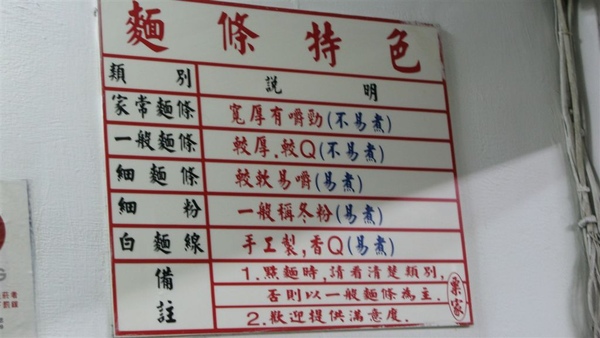 麵條特色
類別 說明
家常麵條 寬厚有嚼勁(不易煮)
一般麵條 較厚.較Q(不易煮)
細麵條 較軟易嚼(易煮)
細粉 一般稱冬粉(易煮)
白麵線 手工製,香Q(易煮)
備註 1.點麵時,請看清楚類別,
否則以一般麵條為主.
2.歡迎提供滿意度.
店家